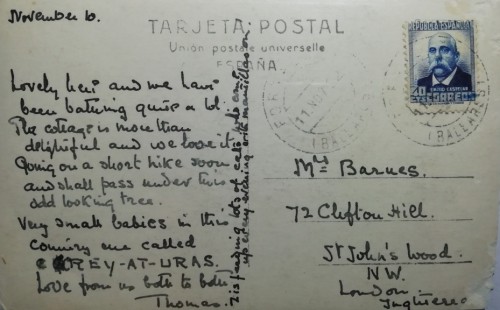 November 10.
TARJETA POSTAL
Union postale universelle
ESPAÑA
REPUBLICA ESPAÑOLA
EMILIO CASTELAR
CORREOS
BALEARES
Lovely here and we have
been bathing quite a lot.
The cottage is more than
delightful and we love it.
Going on a short hike soon
and shall pass under this
odd looking tree.
Very small babies in this
country are called
CREY-AT-URAS.
Love from us both to both
Thomas.
is finding lots of
up every evening with
Mrs Barnes.
72 Clifton Hill.
St John's Wood.
N.W.
London
Inglterra